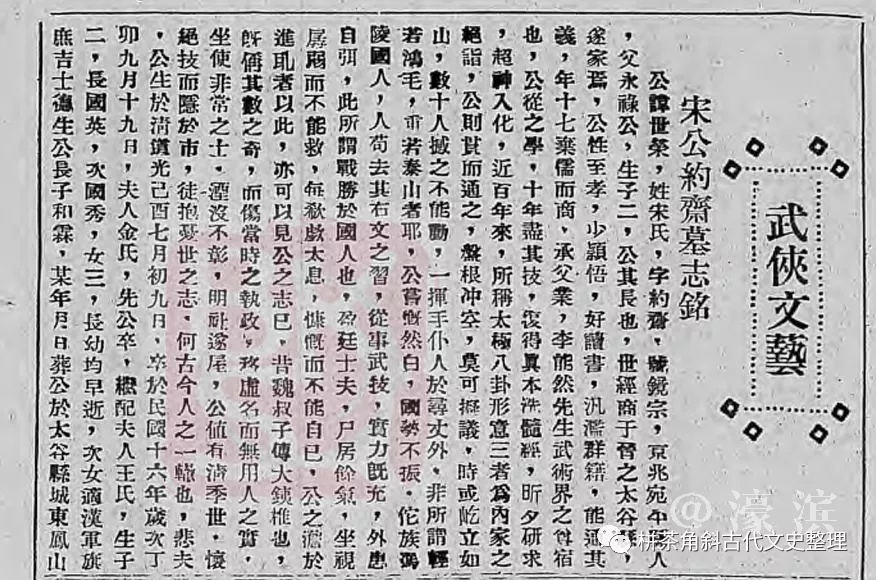 武俠文藝
宋公約齋墓志銘
公諱世榮，姓宋氏，字約齋，號鏡宗，京兆宛平人
，父永祿公，生子二，公其長也，世經商于晉之太谷，
遂家焉，公性至孝，少穎悟，好讀書，汎濫群籍，能通其
義，年十七棄儒而商、承父業，李能然先生武術界之耆宿
也，公從之學，十年盡其技，復得眞本洗髓經，昕夕研求
，超神入化，近百年來，所稱太極八卦形意三者爲內家之
絕詣，公則貫而通之，盤根冲空，莫可擬議，時或屹立如
山，數十人撼之不能動，一揮手仆人於尋丈外，非所謂輕
若鴻毛，重若泰山者耶，公嘗慨然曰，國勢不振，佗族馮
陵國人，人苟去其右文之習，從事武技，實力旣充，外患
自弭，此所謂戰勝於國人也，盈廷士夫，尸居餘氣，坐視
孱弱而不能救，每欷歔太息，慷慨而不能自已，公之澹於
進取者以此，亦可以見公之志已，昔魏叔子傳大鐵椎也，
旣偁其數之奇，而傷當時之執政，務虛名而無用人之實，
坐使非常之士，湮沒不彰，明社遂屋，公値有清季世，懷
絕技而隱於市，徒抱憂世之志，何古今人之一轍也，悲夫
，公生於清道光己酉七月初九日，卒於民國十六年歲次丁
卯九月十九日，夫人金氏，先公卒，繼配夫人王氏，生子
二，長國英，次國秀，女三，長幼均早逝，次女適漢軍旗
庶吉士德生公長子和霖，某年月日葬公於太谷縣城東鳳山
@濠滨
枡茶角斜古代文史整理